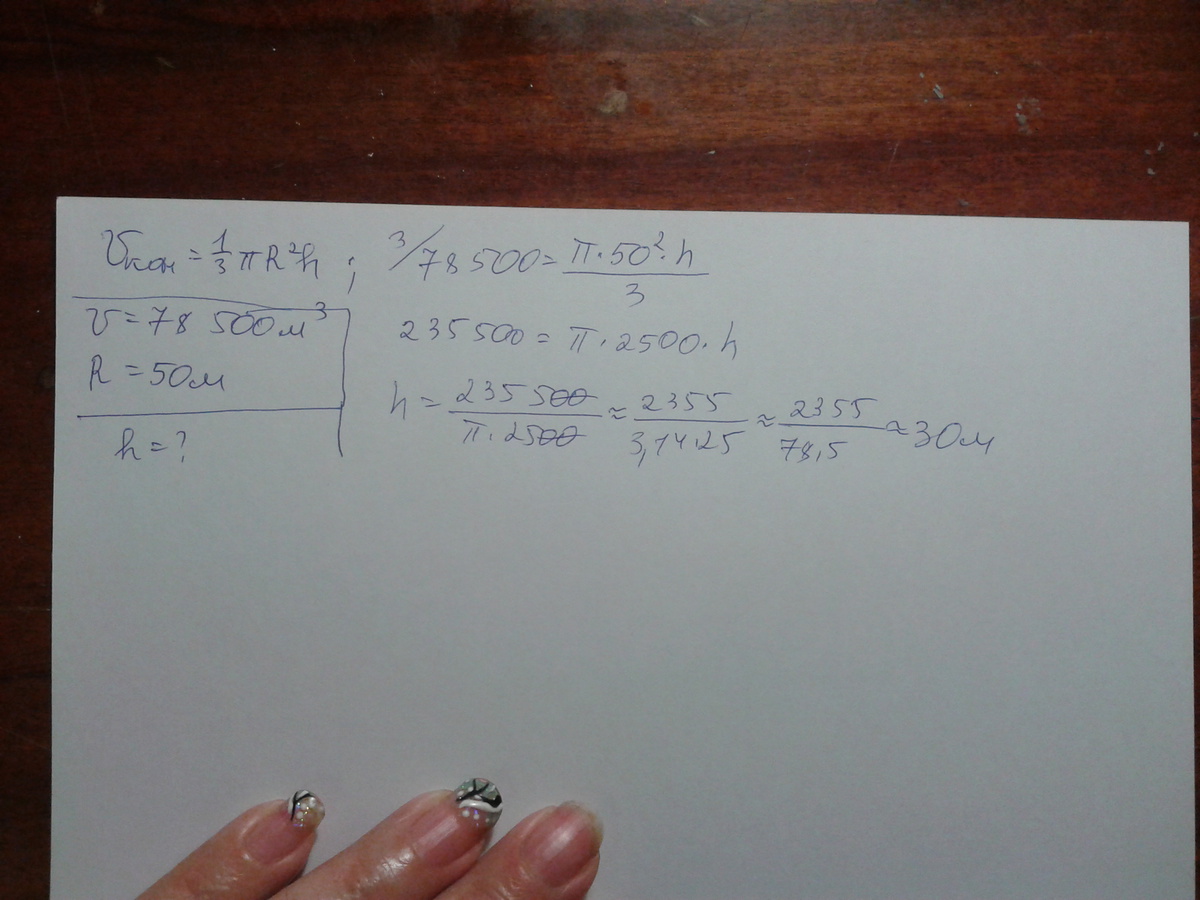 Vкон = 1/3 πR²h ;
V = 78 500 м³
R = 50 м
h = ?
3/ 78 500 = π·50²·h / 3
235 500 = π·2500·h
h = 235 500 / π·2500 ≈ 2355 / 3,14·25 ≈ 2355 / 78,5 ≈ 30 м